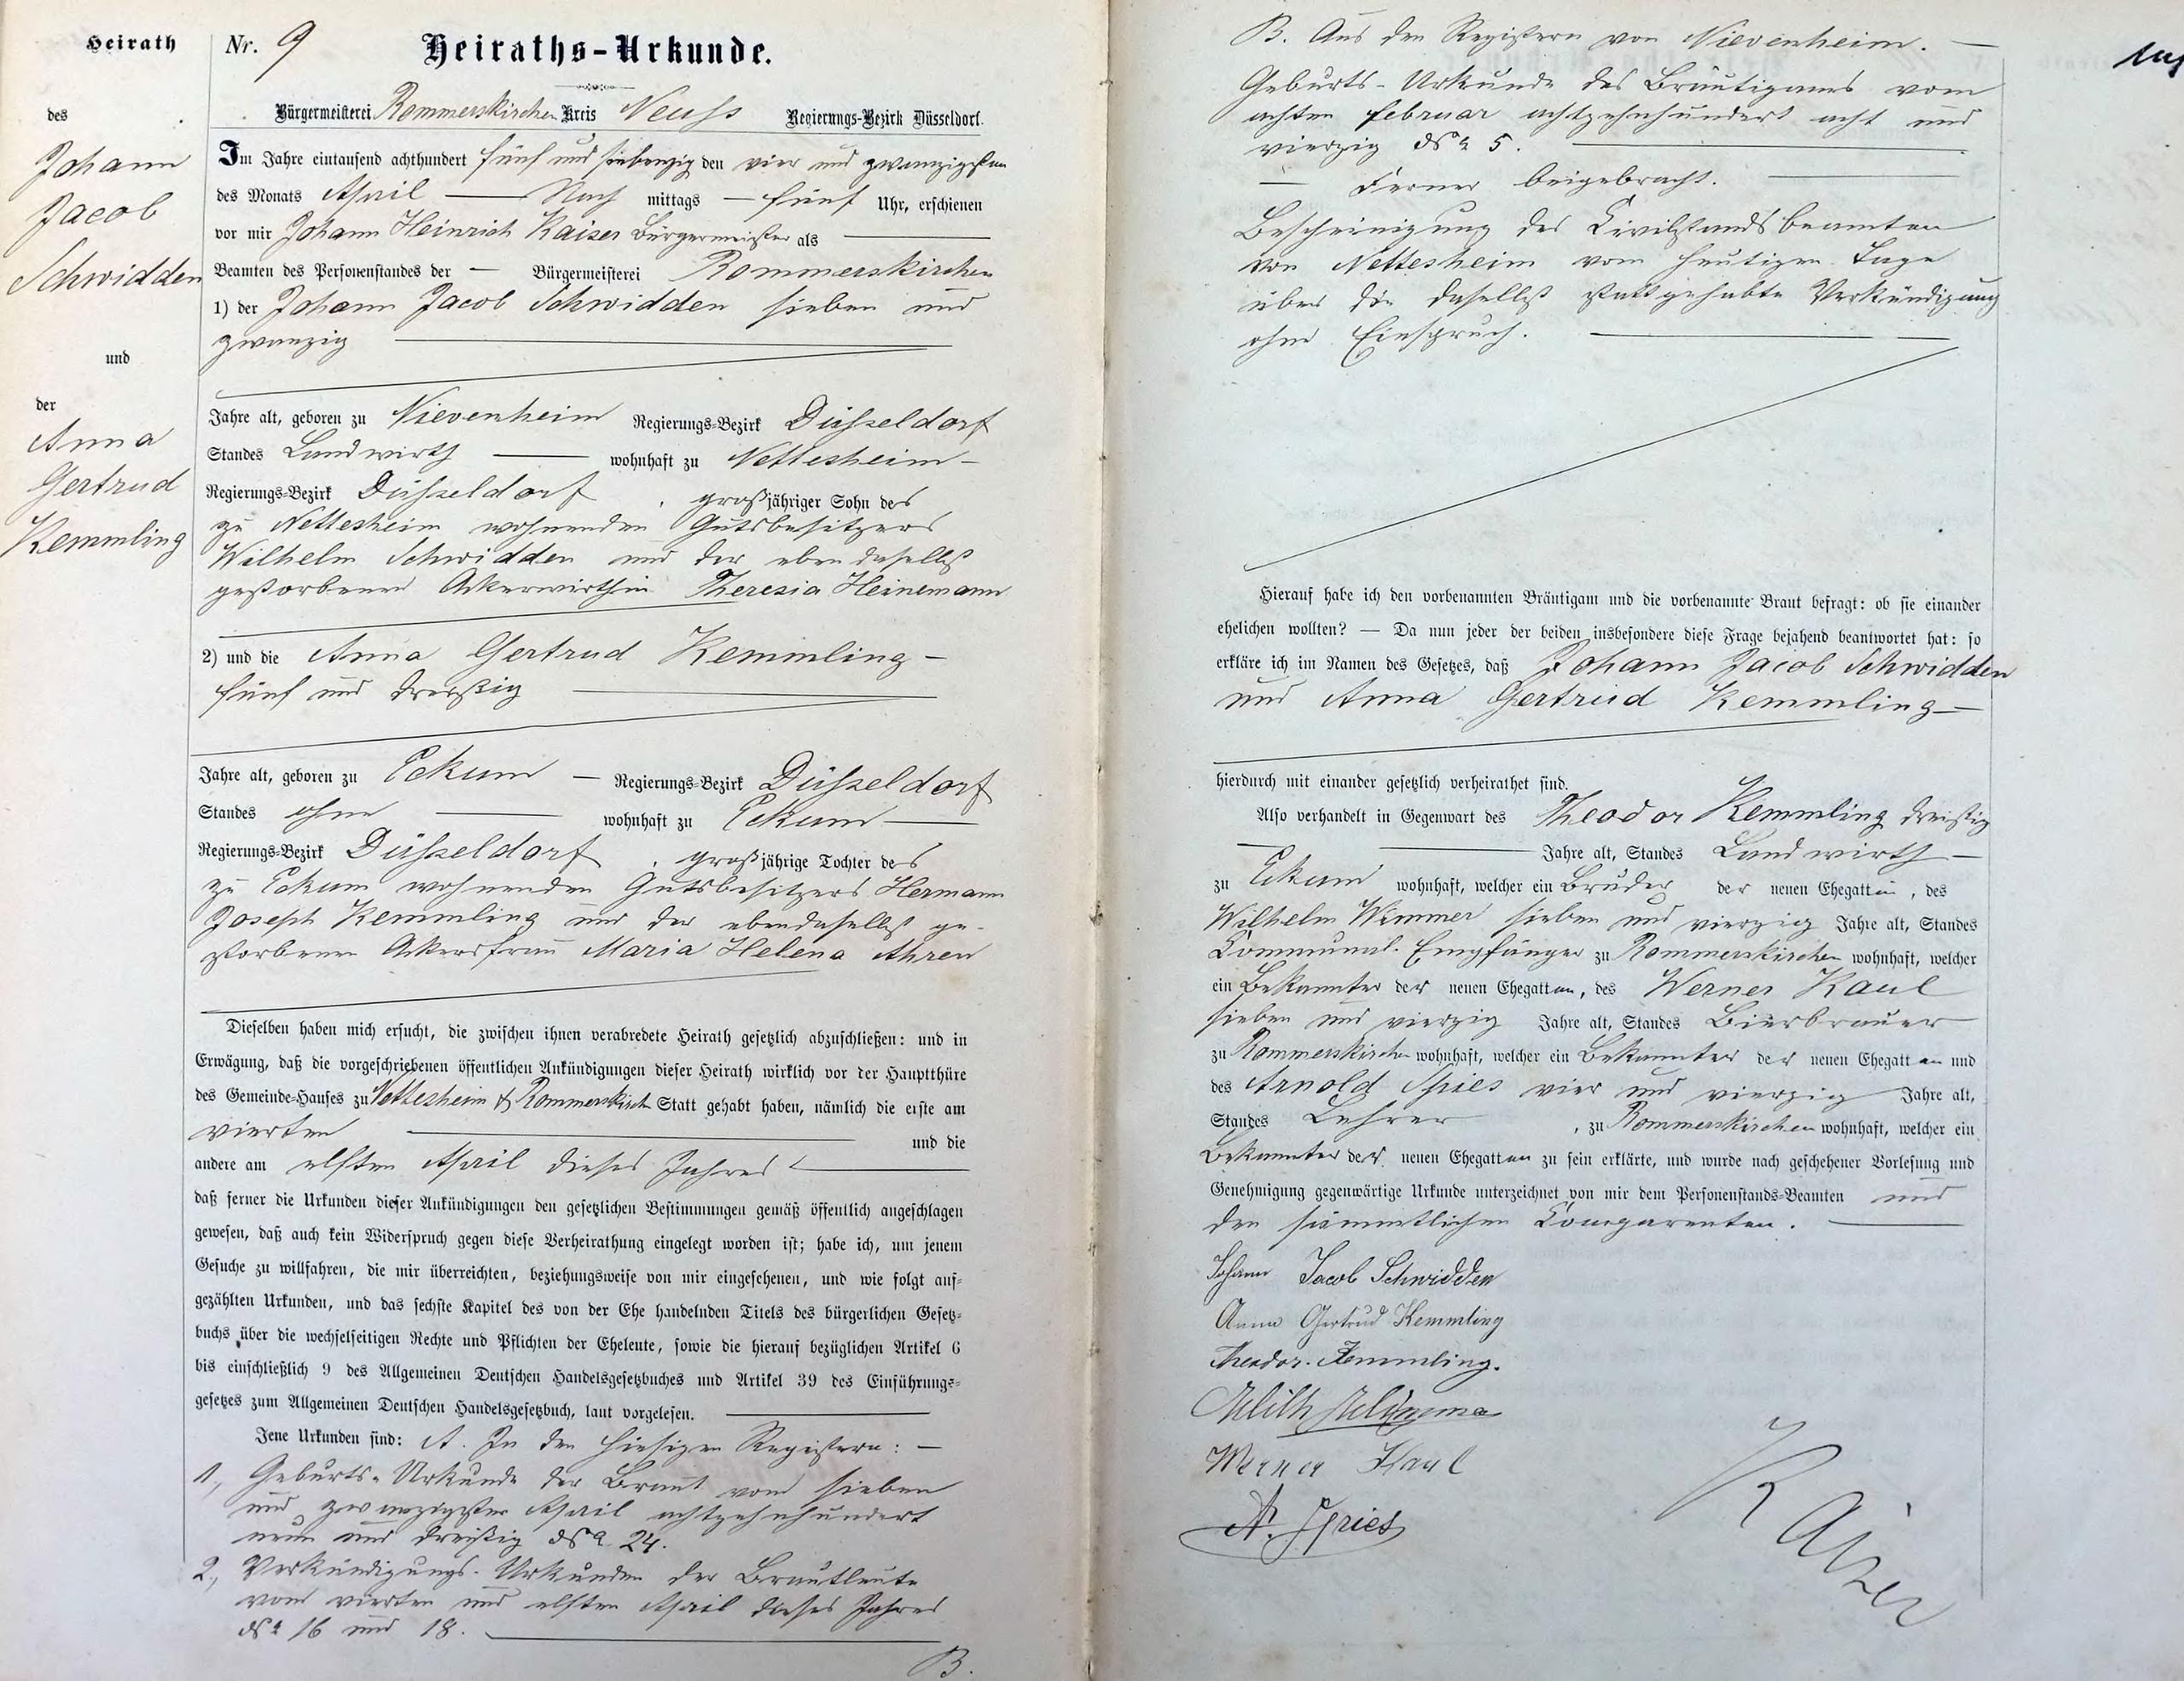 Heirath
des
Johann
Jacob
Schwidden
und
der
Anna
Gertrud
Kemmling
Nr. 9 Heiraths-Urkunde.
Bürgermeisterei Rommerskirchen Kreis Neuss Regierungs-Bezirk Düsseldorf.
Im Jahre eintausend achthundert fünf und siebenzig den vier und zwanzigsten
des Monats April — Nach mittags — fünf Uhr, erschienen
vor mir Johann Heinrich Kaiser Bürgermeister als
Beamten des Personenstandes der — Bürgermeisterei Rommerskirchen
1) der Johann Jacob Schwidden sieben und
zwanzig
Jahre alt, geboren zu Nievenheim Regierungs-Bezirk Düsseldorf
Standes Landwirth — wohnhaft zu Nettesheim —
Regierungs-Bezirk Düsseldorf, großjähriger Sohn des
zu Nettesheim wohnenden Gutsbesitzers
Wilhelm Schwidden und der eben daselbst
gestorbenen Ackerwirthin Theresia Heinemann
2) und die Anna Gertrud Kemmling —
fünf und dreißig
Jahre alt, geboren zu Eckum — Regierungs-Bezirk Düsseldorf
Standes ohne — wohnhaft zu Eckum —
Regierungs-Bezirk Düsseldorf, großjährige Tochter des
zu Eckum wohnenden Gutsbesitzers Hermann
Joseph Kemmling und der ebendaselbst ge-
storbenen Ackersfrau Maria Helena Ahren
Dieselben haben mich ersucht, die zwischen ihnen verabredete Heirath gesetzlich abzuschließen: und in
Erwägung, daß die vorgeschriebenen öffentlichen Ankündigungen dieser Heirath wirklich vor der Hauptthüre
des Gemeinde-Hauses zu Nettesheim & Rommerskirch Statt gehabt haben, nämlich die erste am
vierten — und die
andere am elften April dieses Jahres
daß ferner die Urkunden dieser Ankündigungen den gesetzlichen Bestimmungen gemäß öffentlich angeschlagen
gewesen, daß auch kein Widerspruch gegen diese Verheirathung eingelegt worden ist; habe ich, um jenem
Gesuche zu willfahren, die mir überreichten, beziehungsweise von mir eingesehenen, und wie folgt auf-
gezählten Urkunden, und das sechste Kapitel des von der Ehe handelnden Titels des bürgerlichen Gesetz-
buchs über die wechselseitigen Rechte und Pflichten der Eheleute, sowie die hierauf bezüglichen Artikel 6
bis einschließlich 9 des Allgemeinen Deutschen Handelsgesetzbuches und Artikel 39 des Einführungs-
gesetzes zum Allgemeinen Deutschen Handelsgesetzbuch, laut vorgelesen.
Jene Urkunden sind: A. In den hiesigen Registern: —
1, Geburts-Urkunde der Braut vom sieben
und zwanzigsten April achtzehnhundert
neun und dreißig No 24.
2, Verkündigungs-Urkunden der Brautleute
vom vierten und elften April dieses Jahres
No 16 und 18.
B.
B. Aus den Registern von Nievenheim. —
Geburts-Urkunde des Bräutigams vom
achten Februar achtzehnhundert acht und
vierzig No 5.
— Ferner beigebracht. —
Bescheinigung des Civilstandsbeamten
von Nettesheim vom heutigen Tage
über die daselbst stattgehabte Verkündigung
ohne Einspruch.
Hierauf habe ich den vorbenannten Bräutigam und die vorbenannte Braut befragt: ob sie einander
ehelichen wollten? — Da nun jeder der beiden insbesondere diese Frage bejahend beantwortet hat: so
erkläre ich im Namen des Gesetzes, daß Johann Jacob Schwidden
und Anna Gertrud Kemmling —
hierdurch mit einander gesetzlich verheirathet sind.
Also verhandelt in Gegenwart des Theodor Kemmling dreißig
— Jahre alt, Standes Landwirth —
zu Eckum wohnhaft, welcher ein Bruder der neuen Ehegattin, des
Wilhelm Wimmer sieben und vierzig Jahre alt, Standes
Communal-Empfänger zu Rommerskirchen wohnhaft, welcher
ein Bekannter der neuen Ehegatten, des Werner Kaul
sieben und vierzig Jahre alt, Standes Bierbrauer
zu Rommerskirchen wohnhaft, welcher ein Bekannter der neuen Ehegatten und
des Arnold Spies vier und vierzig Jahre alt,
Standes Lehrer, zu Rommerskirchen wohnhaft, welcher ein
Bekannter der neuen Ehegatten zu sein erklärte, und wurde nach geschehener Vorlesung und
Genehmigung gegenwärtige Urkunde unterzeichnet von mir dem Personenstands-Beamten und
den sämmtlichen Comparenten.
Johann Jacob Schwidden
Anna Gertrud Kemmling
Theodor Kemmling.
Werner Kaul
A. Spies
Kaiser